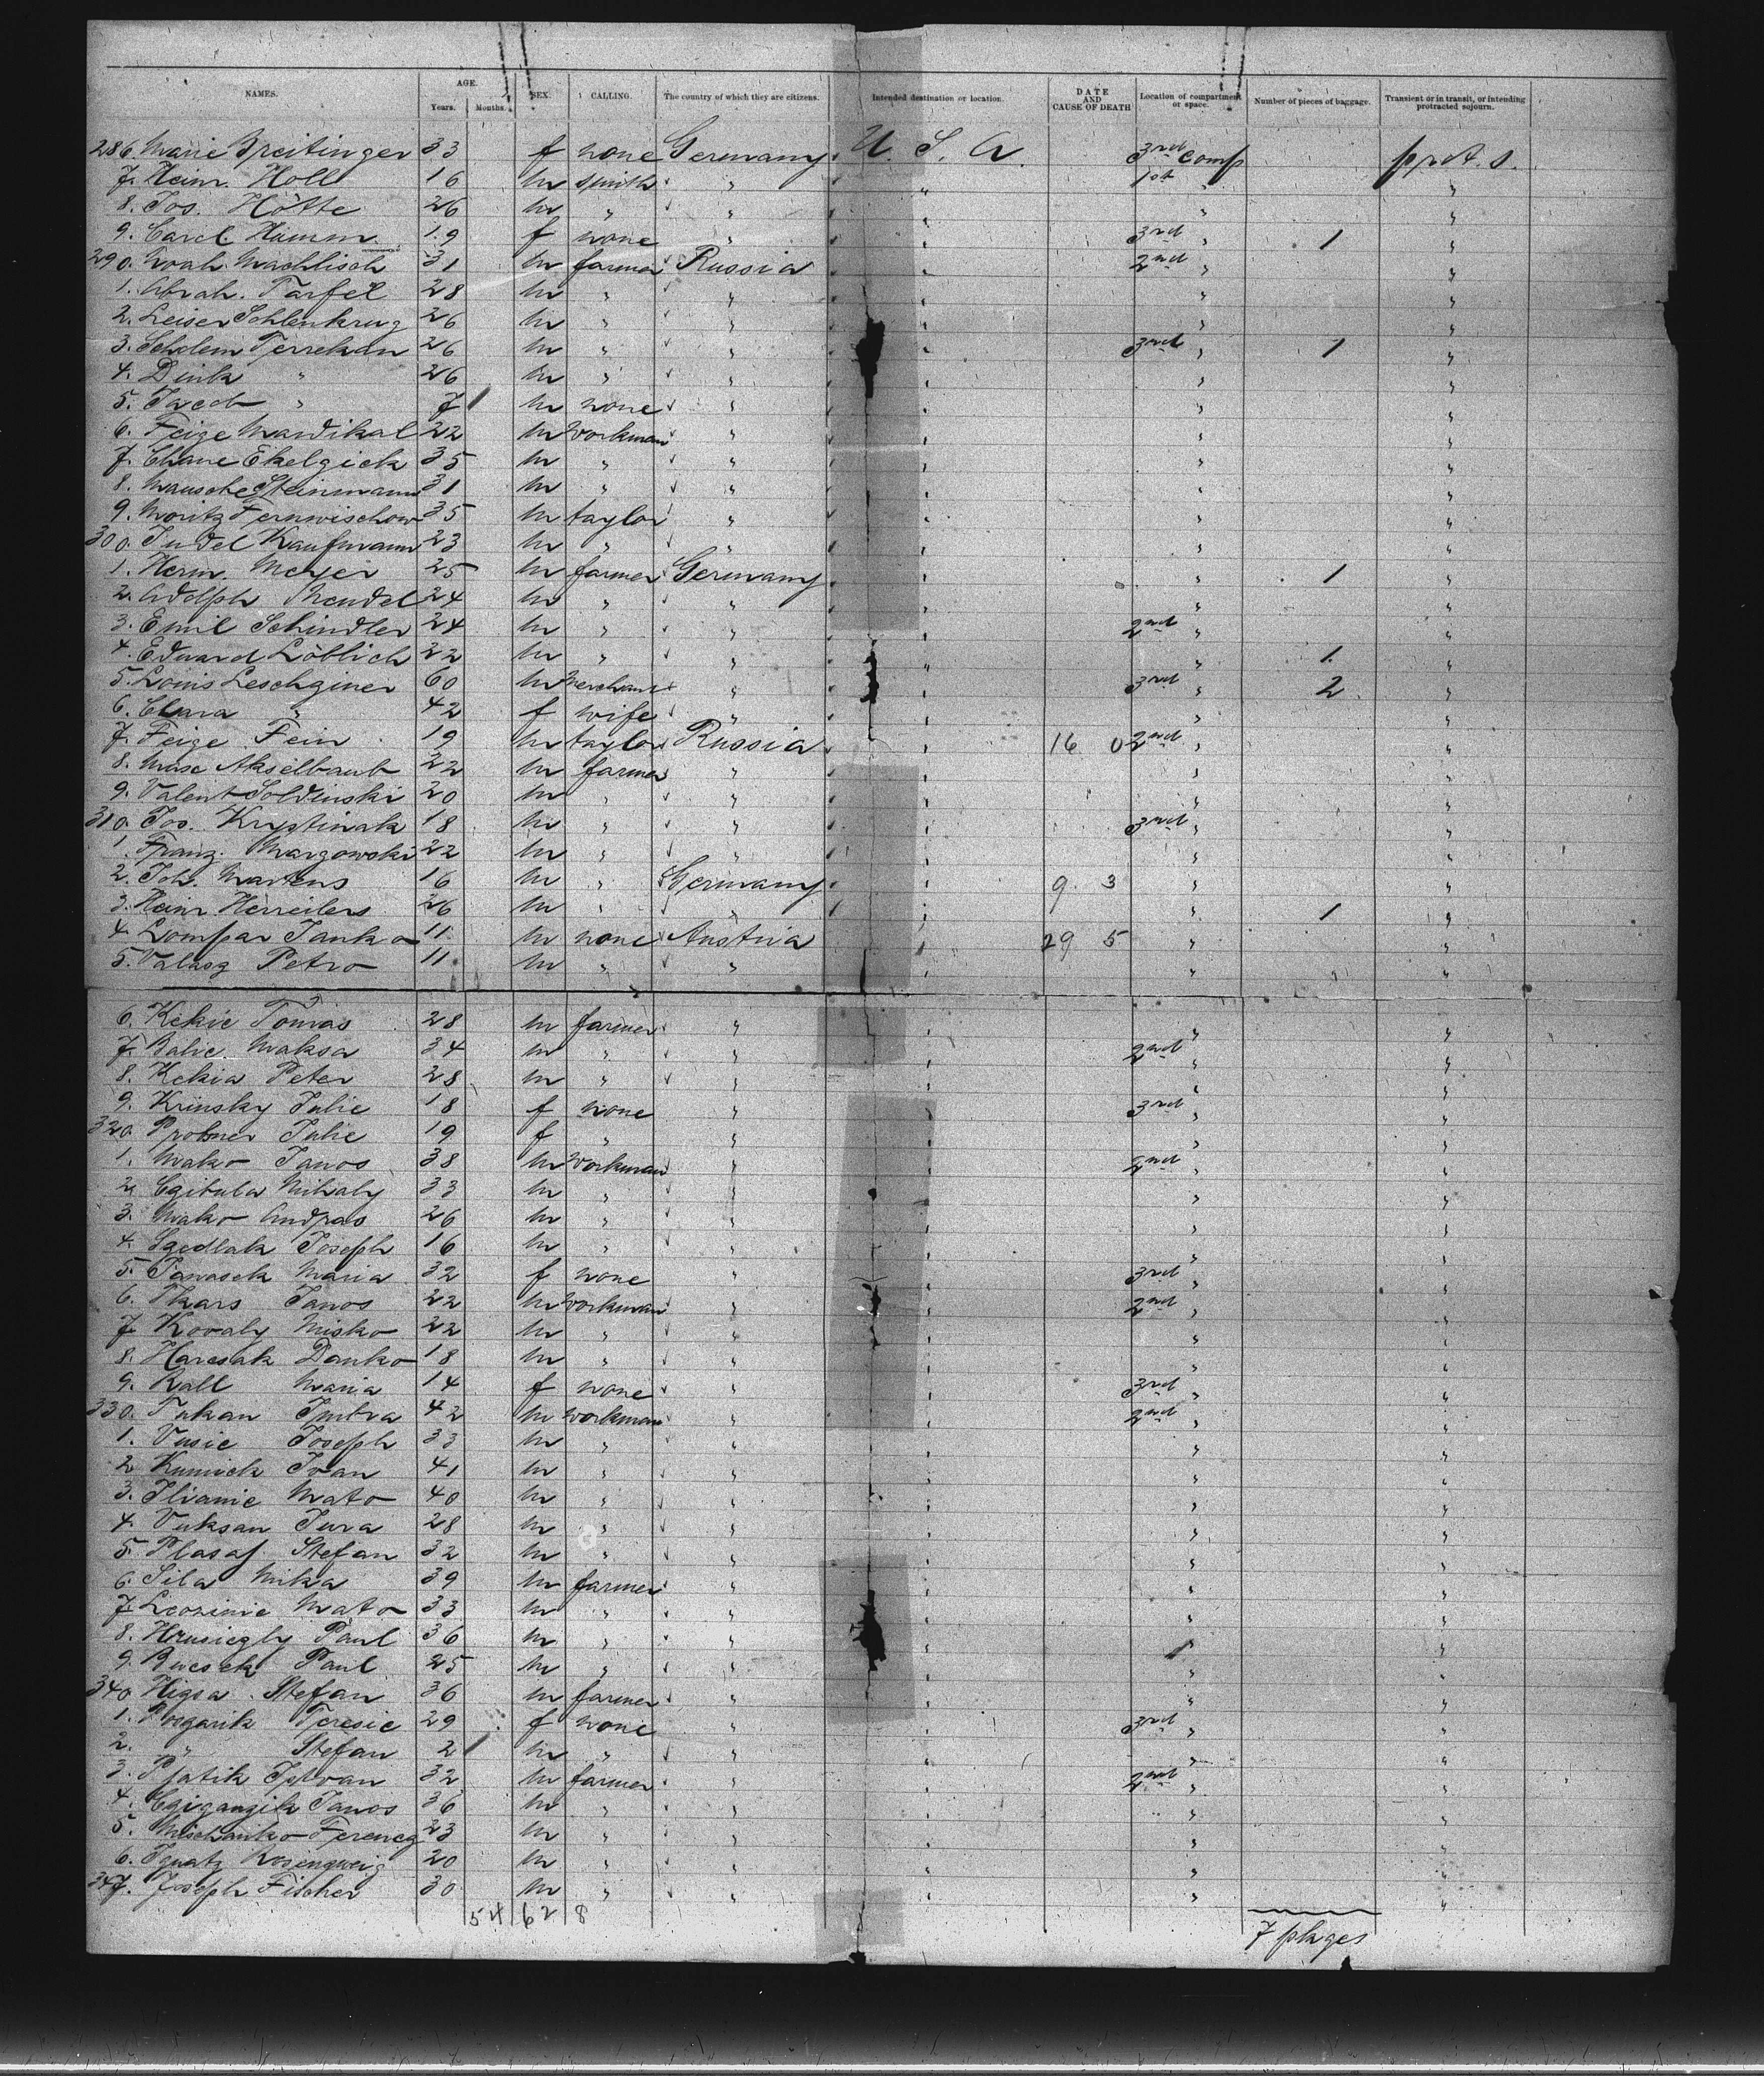 NAMES. AGE. Years. Months. SEX. CALLING. The country of which they are citizens. Intended destination or location. DATE AND CAUSE OF DEATH Location of compartment or space. Number of pieces of baggage. Transient or in transit, or intending protracted sojourn.
286. Marie Breitinger 33 f none Germany U. S. A. 3rd comp prot. s.
7. Heinr. Holl 16 m smith " " 1st " "
8. Jos. Hötte 26 m " " " " "
9. Carol. Hamm 19 f none " " 3rd " 1 "
290. Noah Machlisch 31 m farmer Russia " 2nd " "
1. Abrah. Tarfel 28 m " " " " "
2. Leiser Schlenkrug 26 m " " " " "
3. Scholem Terrekan 26 m " " " 3rd " 1 "
4. Dink " 26 m " " " " "
5. Jacob " 7 m none " " " "
6. Feige Mardikal 22 m workman " " " "
7. Chane Ekelgick 35 m " " " " "
8. Mausche Steinmann 31 m " " " " "
9. Moritz Fernwischow 35 m taylor " " " "
300. Judel Kaufmann 23 m " " " " "
1. Herm. Meyer 25 m farmer Germany " " 1 "
2. Adolph Mendel 24 m " " " " "
3. Emil Schindler 24 m " " " 2nd " "
4. Eduard Löblich 22 m " " " " 1 "
5. Louis Leschginer 60 m Merchant " " 3rd " 2 "
6. Clara " 42 f wife " " " "
7. Feige Fein 19 m taylor Russia " 16 0 2nd " "
8. Mose Akselbaub 22 m farmer " " " "
9. Valent Soldinski 20 m " " " " "
310. Jos. Krystinak 18 m " " " 3rd " "
1. Franz. Margowski 22 m " " " " "
2. Joh. Martens 16 m " Germany " 9 3 " "
3. Heinr Herreilers 26 m " " " " 1 "
4. Lompar Janko 11 m none Austria " 29 5 " "
5. Valasz Petro 11 m " " " " "
6. Kekic Tomas 28 m farmer " " " "
7. Balic Maksa 34 m " " " 2nd " "
8. Kekia Peter 28 m " " " " "
9. Krinsky Julie 18 f none " " 3rd " "
320. Probner Julie 19 f " " " " "
1. Mako Janos 38 m workman " " 2nd " "
2. Cgibula Mihaly 33 m " " " " "
3. Mako Andras 26 m " " " " "
4. Szedlak Joseph 16 m " " " " "
5. Janasek Maria 32 f none " " 3rd " "
6. Tkars Janos 22 m workman " " 2nd " "
7. Kovaly Misko 22 m " " " " "
8. Harcsak Danko 18 m " " " " "
9. Kall Maria 14 f none " " 3rd " "
330. Tukan Imbra 42 m workman " " 2nd " "
1. Vusic Joseph 33 m " " " " "
2. Kunick Ivan 41 m " " " " "
3. Ilianic Mato 40 m " " " " "
4. Vuksan Jura 28 m " " " " "
5. Plasaj Stefan 32 m " " " " "
6. Sila Mika 39 m farmer " " " "
7. Leozinic Mato 33 m " " " " "
8. Hrusiczly Paul 36 m " " " "
9. Bucsek Paul 25 m " " " " "
340. Higsa Stefan 36 m farmer " " " "
1. Posgarik Teresie 29 f none " " 3rd " "
2. " Stefan 2 m " " " " "
3. Pjatik Istvan 32 m farmer " " 2nd " "
4. Cgigangik Janos 36 m " " " " "
5. Mischanko Ferencz 23 m " " " " "
6. Ignatz Rosengweig 20 m " " " " "
347. Joseph Fischer 30 m " " " " "
54 62 8
7 pkges